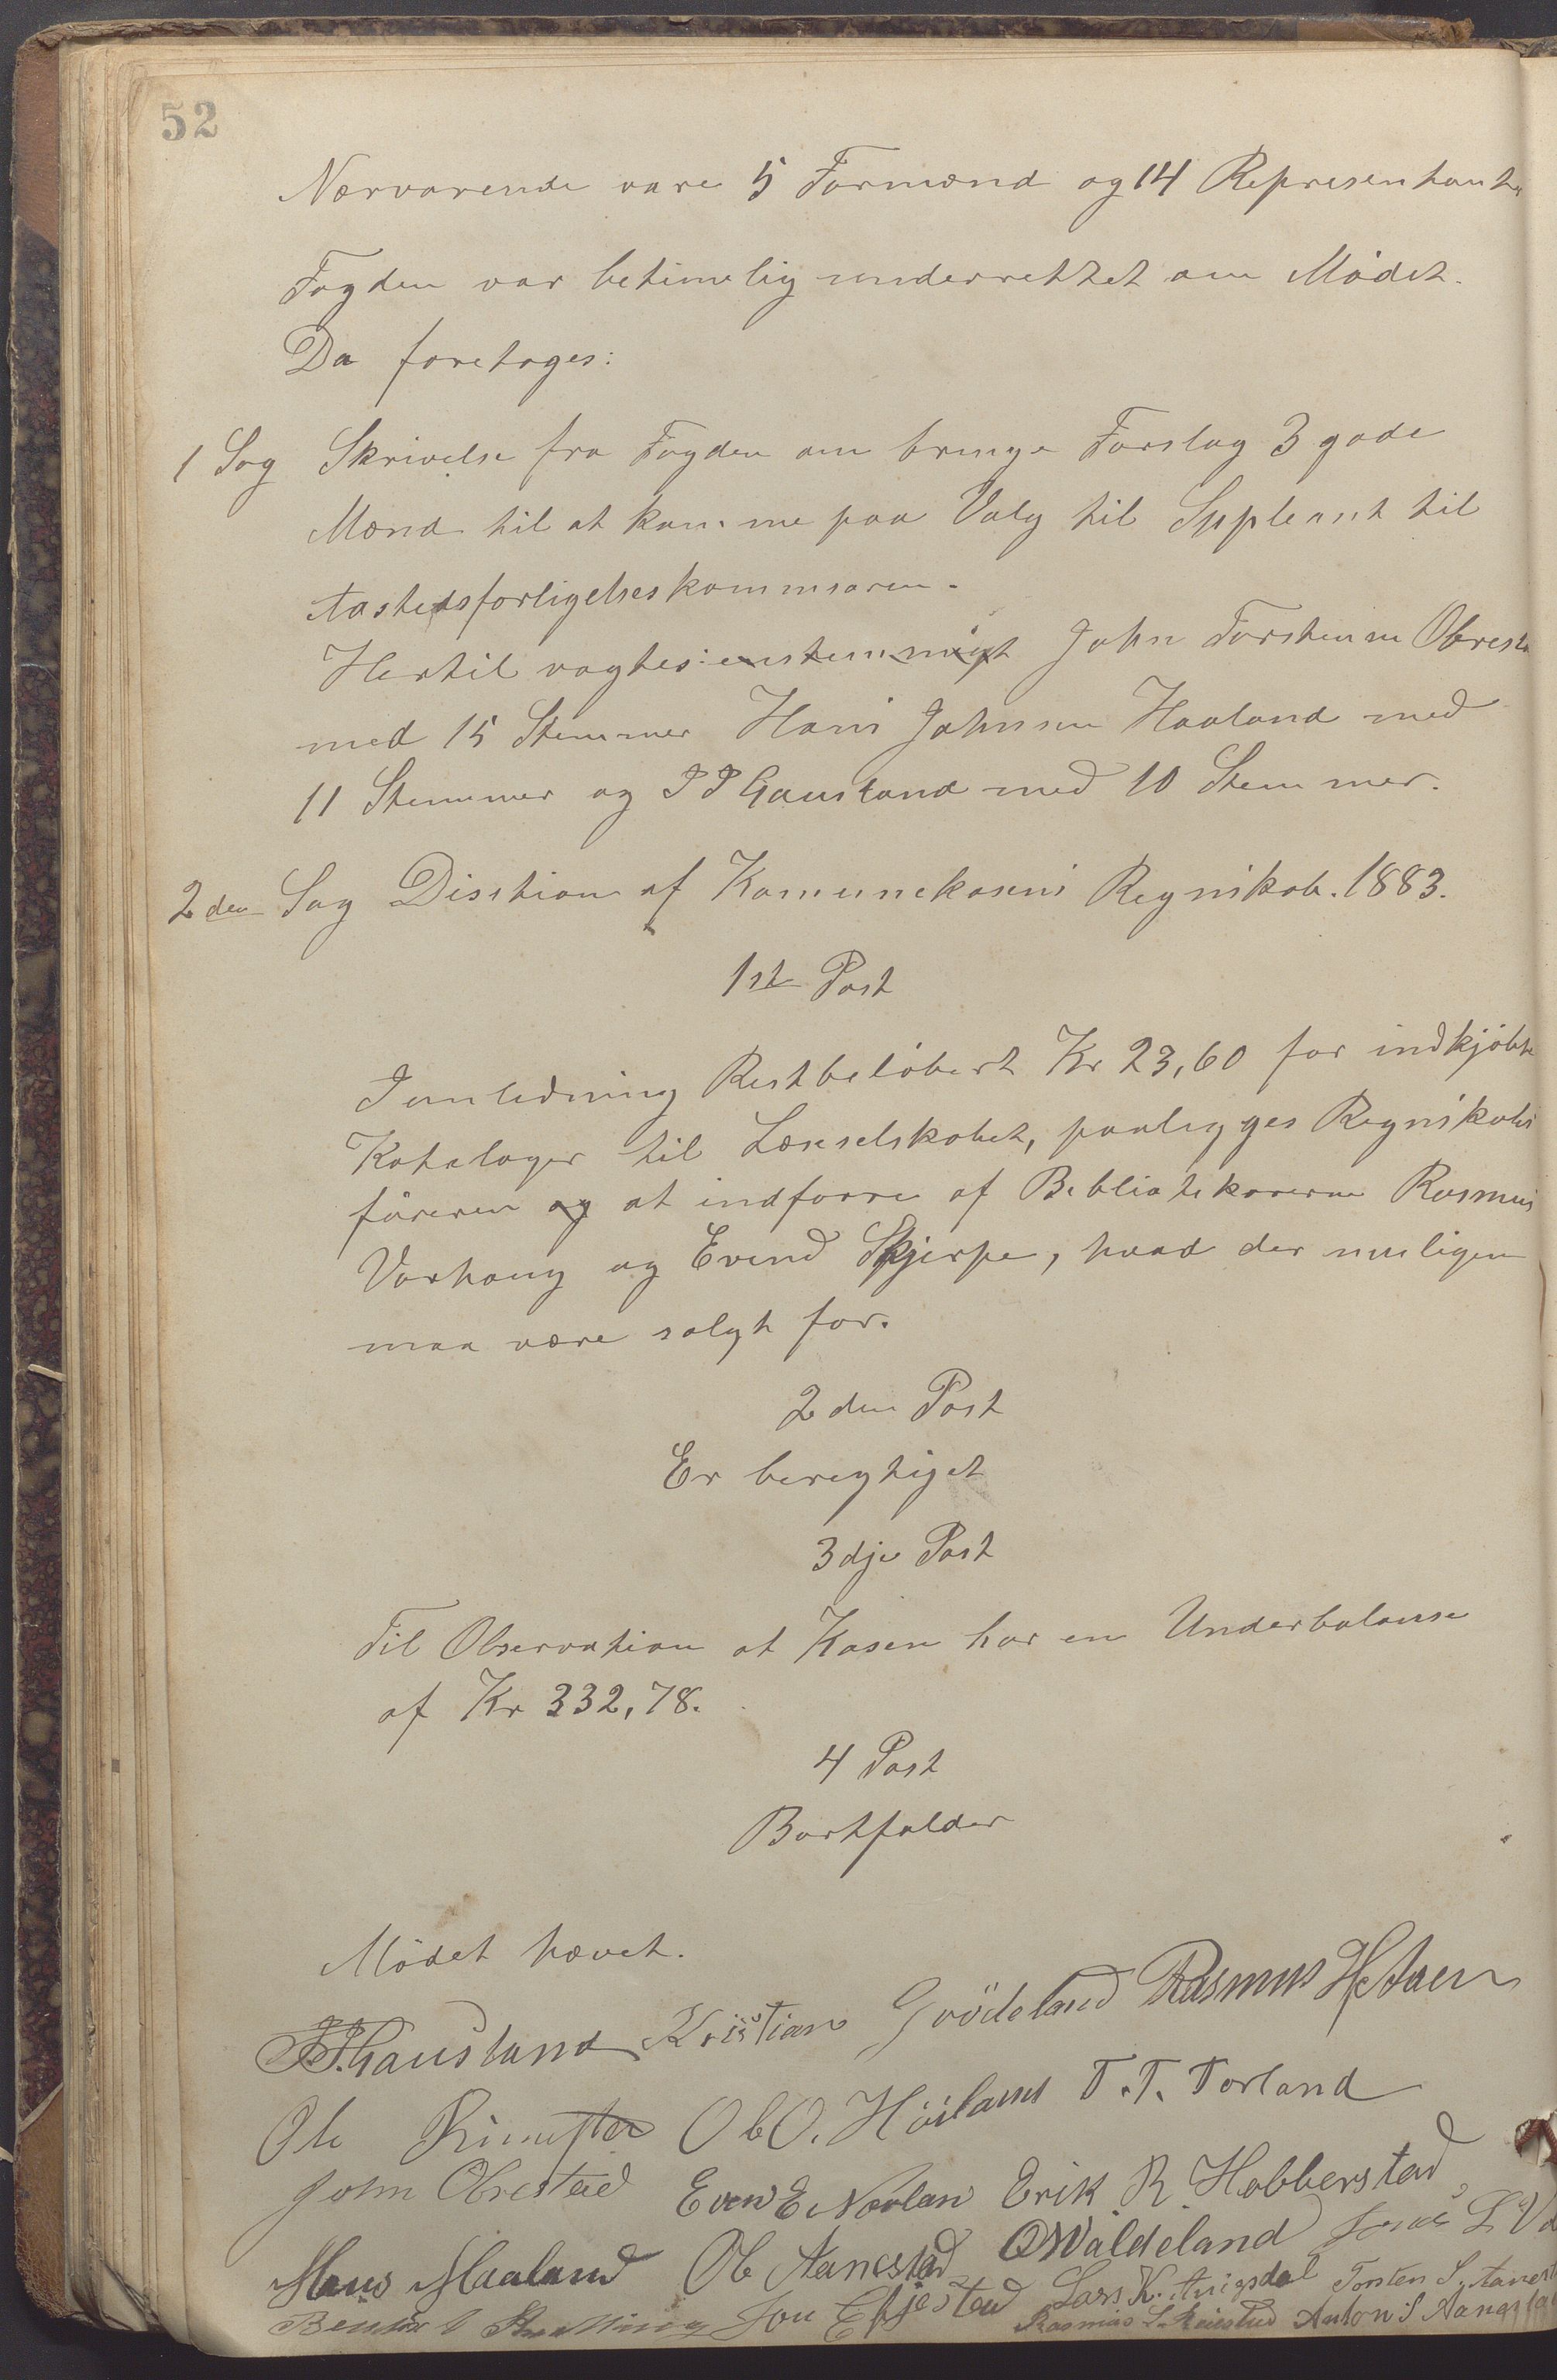 52
Nærværende vare 5 Formænd og 14 Representanter
Fogden var betimelig underrettet om Mödet.
Da foretoges:
1 Sag Skrivelse fra Fogden om bringe Forslag 3 gode
Mænd til at komme paa Valg til Sppleant til
Aastedsforligelseskommsaren.
Hertil vagtes: enstemmigt John Torstensen Obrestad
med 15 Stemmer Hans Johnsen Haaland med
11 Stemmer og I I Gausland med 10 Stemmer.
2den Sag Disstion af Komunekasens Regnskab. 1883.
1ste Post
Restbelöbert Kr 23,60 for indkjöbte
Kataloger til Læseselskabet, paalegges Regnskabs
föreren og at indforre af Bebliotekarerne Rasmus
Varhoug og Evend Skjerpe, hvad der muligen
maa være solgt for.
2den Post
Er beregtiget
3dje Post
Til Observation at Kasen har en Underbalanse
af Kr 332,78.
4 Post
Bortfalder
Mödet hævet.
I I Gausland Kristian Grödeland Rasmus H Aaen
Ole Ole O. Höiland T. T. Torland
John Obrestad Even E Norland Erik R Hobberstad
Hans Haaland Ole Aanestad O Waldeland
Lars K. Anisdal Torsten S. Aanestad
Rasmus L. Reiestad Anton S Aanestad